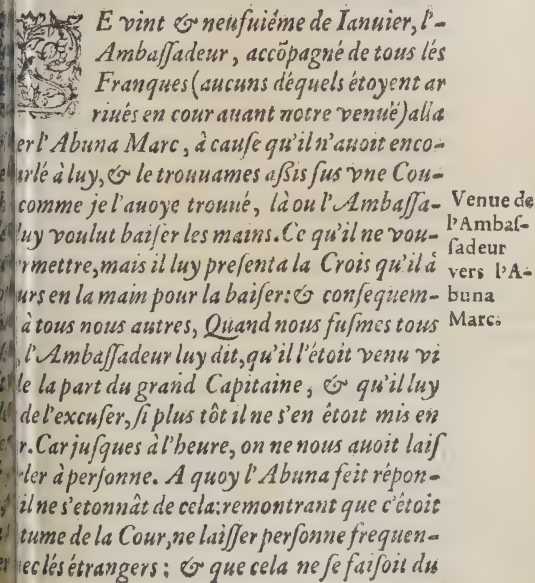 LE vint & neufuiéme de Ianuier, l'-
Ambassadeur, accõpagné de tous lés
Franques (aucuns déquels étoyent ar
riués en cour auant notre venuë) alla
er l'Abuna Marc, à cause qu'il n'auoit enco-
arlé à luy, & le trouuames assis sus vne Cou-
comme je l'auoye trouué, là ou l'Ambassa-
luy voulut baiser les mains. Ce qu'il ne vou-
ermettre, mais il luy presenta la Crois qu'il à
urs en la main pour la baiser: & consequem-
à tous nous autres, Quand nous fusmes tous
l'Ambassadeur luy dit, qu'il l'étoit venu vi
de la part du grand Capitaine, & qu'il luy
de l'excuser, si plus tôt il ne s'en étoit mis en
r. Car jusques à l'heure, on ne nous auoit lais
ler à personne. A quoy l'Abuna feit répon-
il ne s'etonnât de cela: remontrant que c'étoit
tume de la Cour, ne laisser personne frequen-
uec lés étrangers; & que cela ne se faisoit du
Venue de
l'Ambas-
sadeur
vers l'A-
buna
Marc.